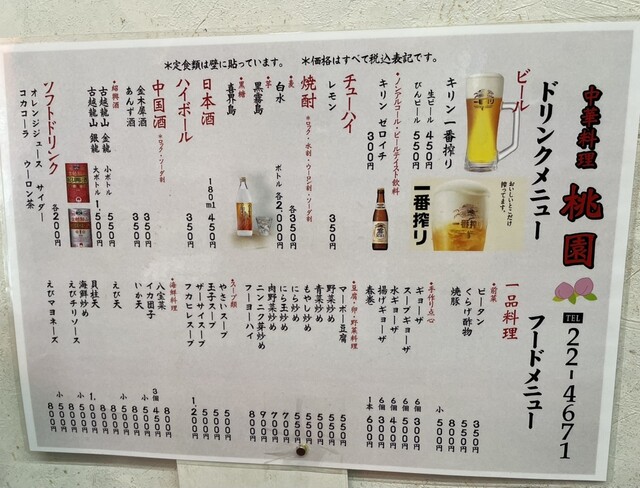 中華料理 桃園
TEL 22-4671
ドリンクメニュー
フードメニュー
*定食類は壁に貼っています。 *価格はすべて税込表記です。
ビール
キリン一番搾り
生ビール 450円
びんビール 550円
*ノンアルコール・ビールテイスト飲料
キリン ゼロイチ 300円
おいしいとこだけ搾ってます。
一番搾り
チューハイ
レモン 350円
焼酎 *ロック・水割・ウーロン割・ソーダ割
*麦
白水
*芋
黒霧島
*黒糖
喜界島
各350円
ボトル 各2,000円
日本酒
180mL 450円
ハイボール
350円
中国酒 *ロック・ソーダ割
金木犀酒 350円
あんず酒 350円
*紹興酒
古越龍山 金龍 小ボトル 550円
古越龍山 銀龍 大ボトル 1,500円
ソフトドリンク
オレンジジュース サイダー
コカコーラ ウーロン茶
各200円
一品料理
*前菜
ピータン 350円
くらげ酢物 550円
焼豚 800円
小 500円
*手作り点心
ギョーザ 6個 300円
スープギョーザ 6個 500円
水ギョーザ 6個 400円
揚げギョーザ 6個 300円
春巻 1本 600円
*豆腐・卵・野菜料理
マーボー豆腐 550円
野菜炒め 550円
青菜炒め 550円
もやし炒め 550円
にら炒め 550円
にら玉炒め 700円
肉野菜炒め 700円
ニンニク芽炒め 900円
フーヨーハイ 800円
*スープ類
やさいスープ 500円
玉子スープ 500円
ザーサイスープ 500円
フカヒレスープ 1,200円
*海鮮料理
八宝菜 800円
イカ団子 3個 450円
いか天 800円
小 500円
えび天 800円
小 500円
貝柱天 1,000円
海鮮炒め 800円
えびチリソース 800円
小 500円
えびマヨネーズ 800円